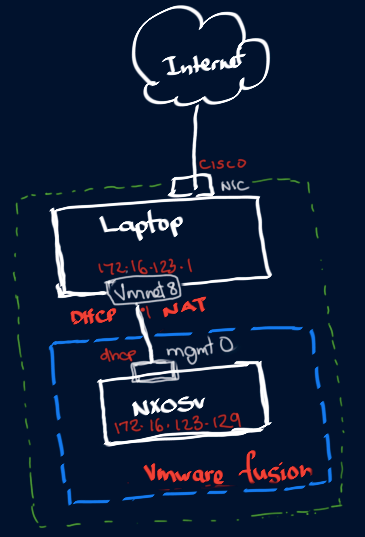 Internet
CISCO
NIC
Laptop
172.16.123.1
Vmnet8
DHCP NAT
dhcp mgmt0
NXOSv
172.16.123.129
Vmware fusion